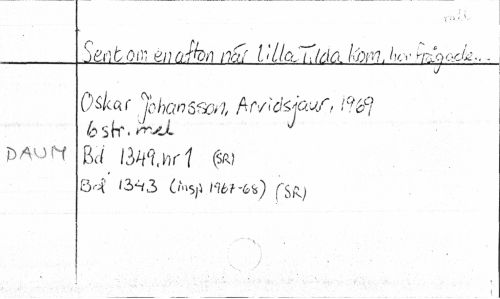 Sent om en afton när lilla Tilda kom, hon frågade...
Oskar Johansson, Arvidsjaur, 1969
6 str. mel
DAUM Bd 1349, nr 1 (SR)
Bd 1343 (insp 1967-68) (SR)